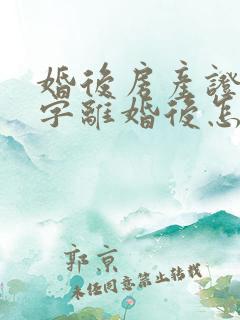 婚後房產證
字離婚後怎
郭京
未任同意禁止转载